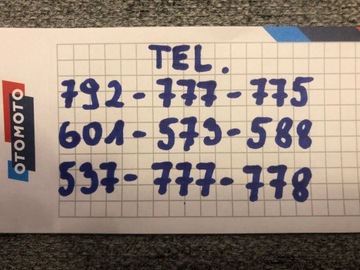 TEL.
792-777-775
601-573-588
537-777-778
OTOMOTO